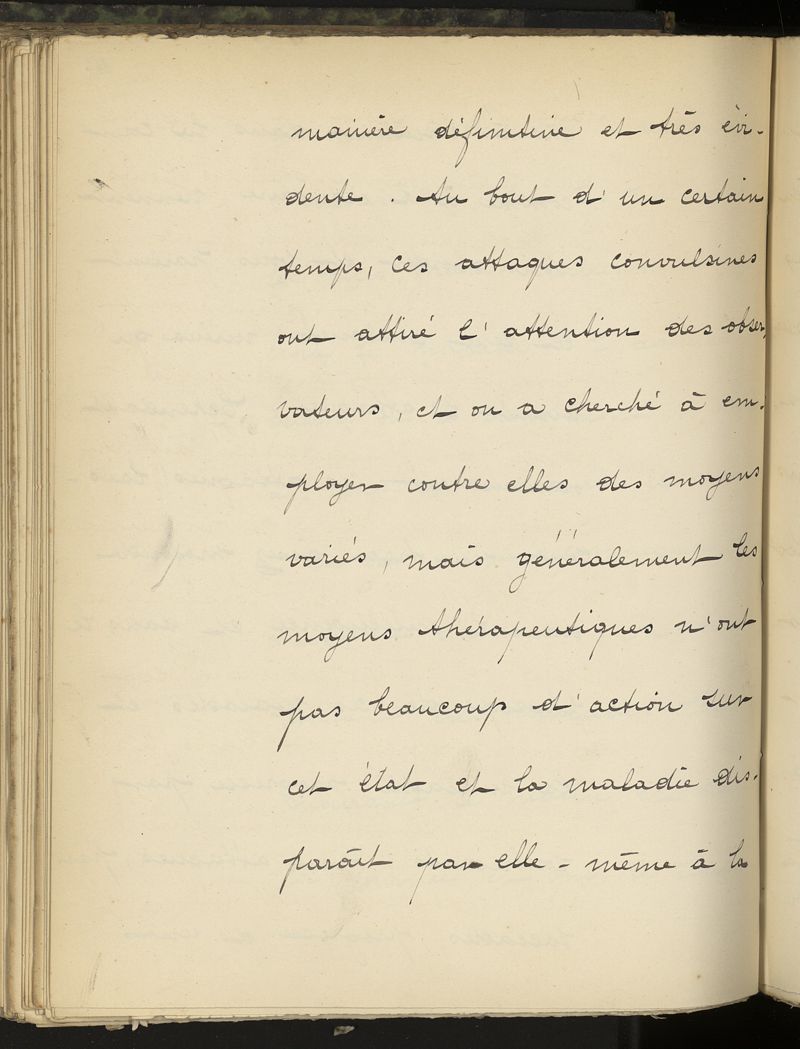 manière définitive et très évi-
dente. Au bout d'un certain
temps, ces attaques convulsives
ont attiré l'attention des obser,
vateurs, et on a cherché à em-
ployer contre elles des moyens
variés, mais généralement les
moyens thérapeutiques n'ont
pas beaucoup d'action sur
cet état et la maladie dis-
paraît par elle-même à la